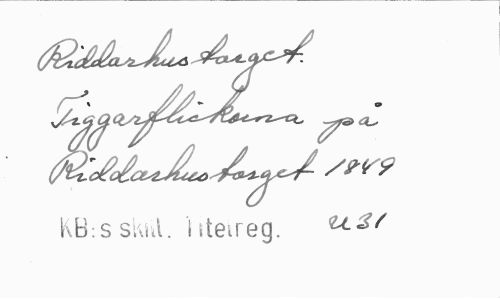 Riddarhustorget.
Tiggarflickorna på
Riddarhustorget 1849
KB:s skillt. Titelreg. U 31